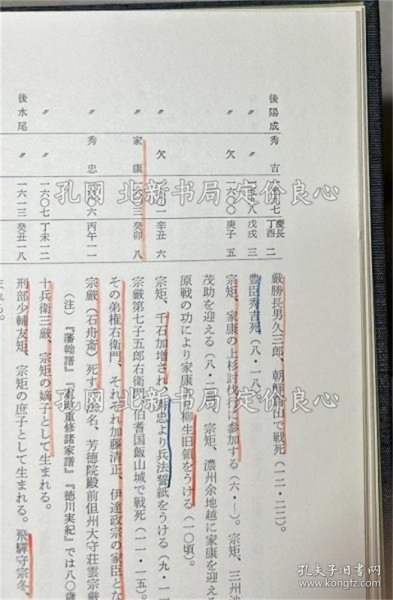 後陽成 秀吉 一五九七 丁酉 慶長二
厳勝長男久三郎、朝鮮蔚山で戦死(一二・二二)。
〃 〃 一五九八 戊戌 三
豊臣秀吉死(八・一八)
〃 欠 一六〇〇 庚子 五
宗矩、家康の上杉討伐行に参加する(六・―)。宗矩、三州
茂助を迎える(八・二
宗矩、濃州余地越に家康を迎え
原戦の功により家康
柳生旧領をうける(一〇頃)。
〃 欠 一六〇一 辛丑 六
宗矩、千石加増され
秀忠より兵法誓紙をうける(九・一一
〃 家康 一六〇三 癸卯 八
宗厳第七子五郎右衛門
伯耆国飯山城で戦死(一一・一五)。
その弟権右衛門、それぞれ加藤清正、伊達政宗の家臣とな
〃 秀忠 一六〇六 丙午 一一
宗厳(石舟斎)死す
法名、芳徳院殿前但州大守荘雲宗厳
(注)『藩翰譜』『寛政重修諸家譜』『徳川実紀』では八〇歳
〃 〃 一六〇七 丁未 一二
十兵衛三厳、宗矩の嫡子として生まれる。
後水尾 〃 一六一三 癸丑 一八
刑部少輔友矩、宗矩の庶子として生まれる。飛騨守宗冬、
まれる。
孔网 北新书局 定价良心
孔网 北新书局 定价良心
孔网 北新书局 定价良心
孔夫子旧书网
www.kongfz.com